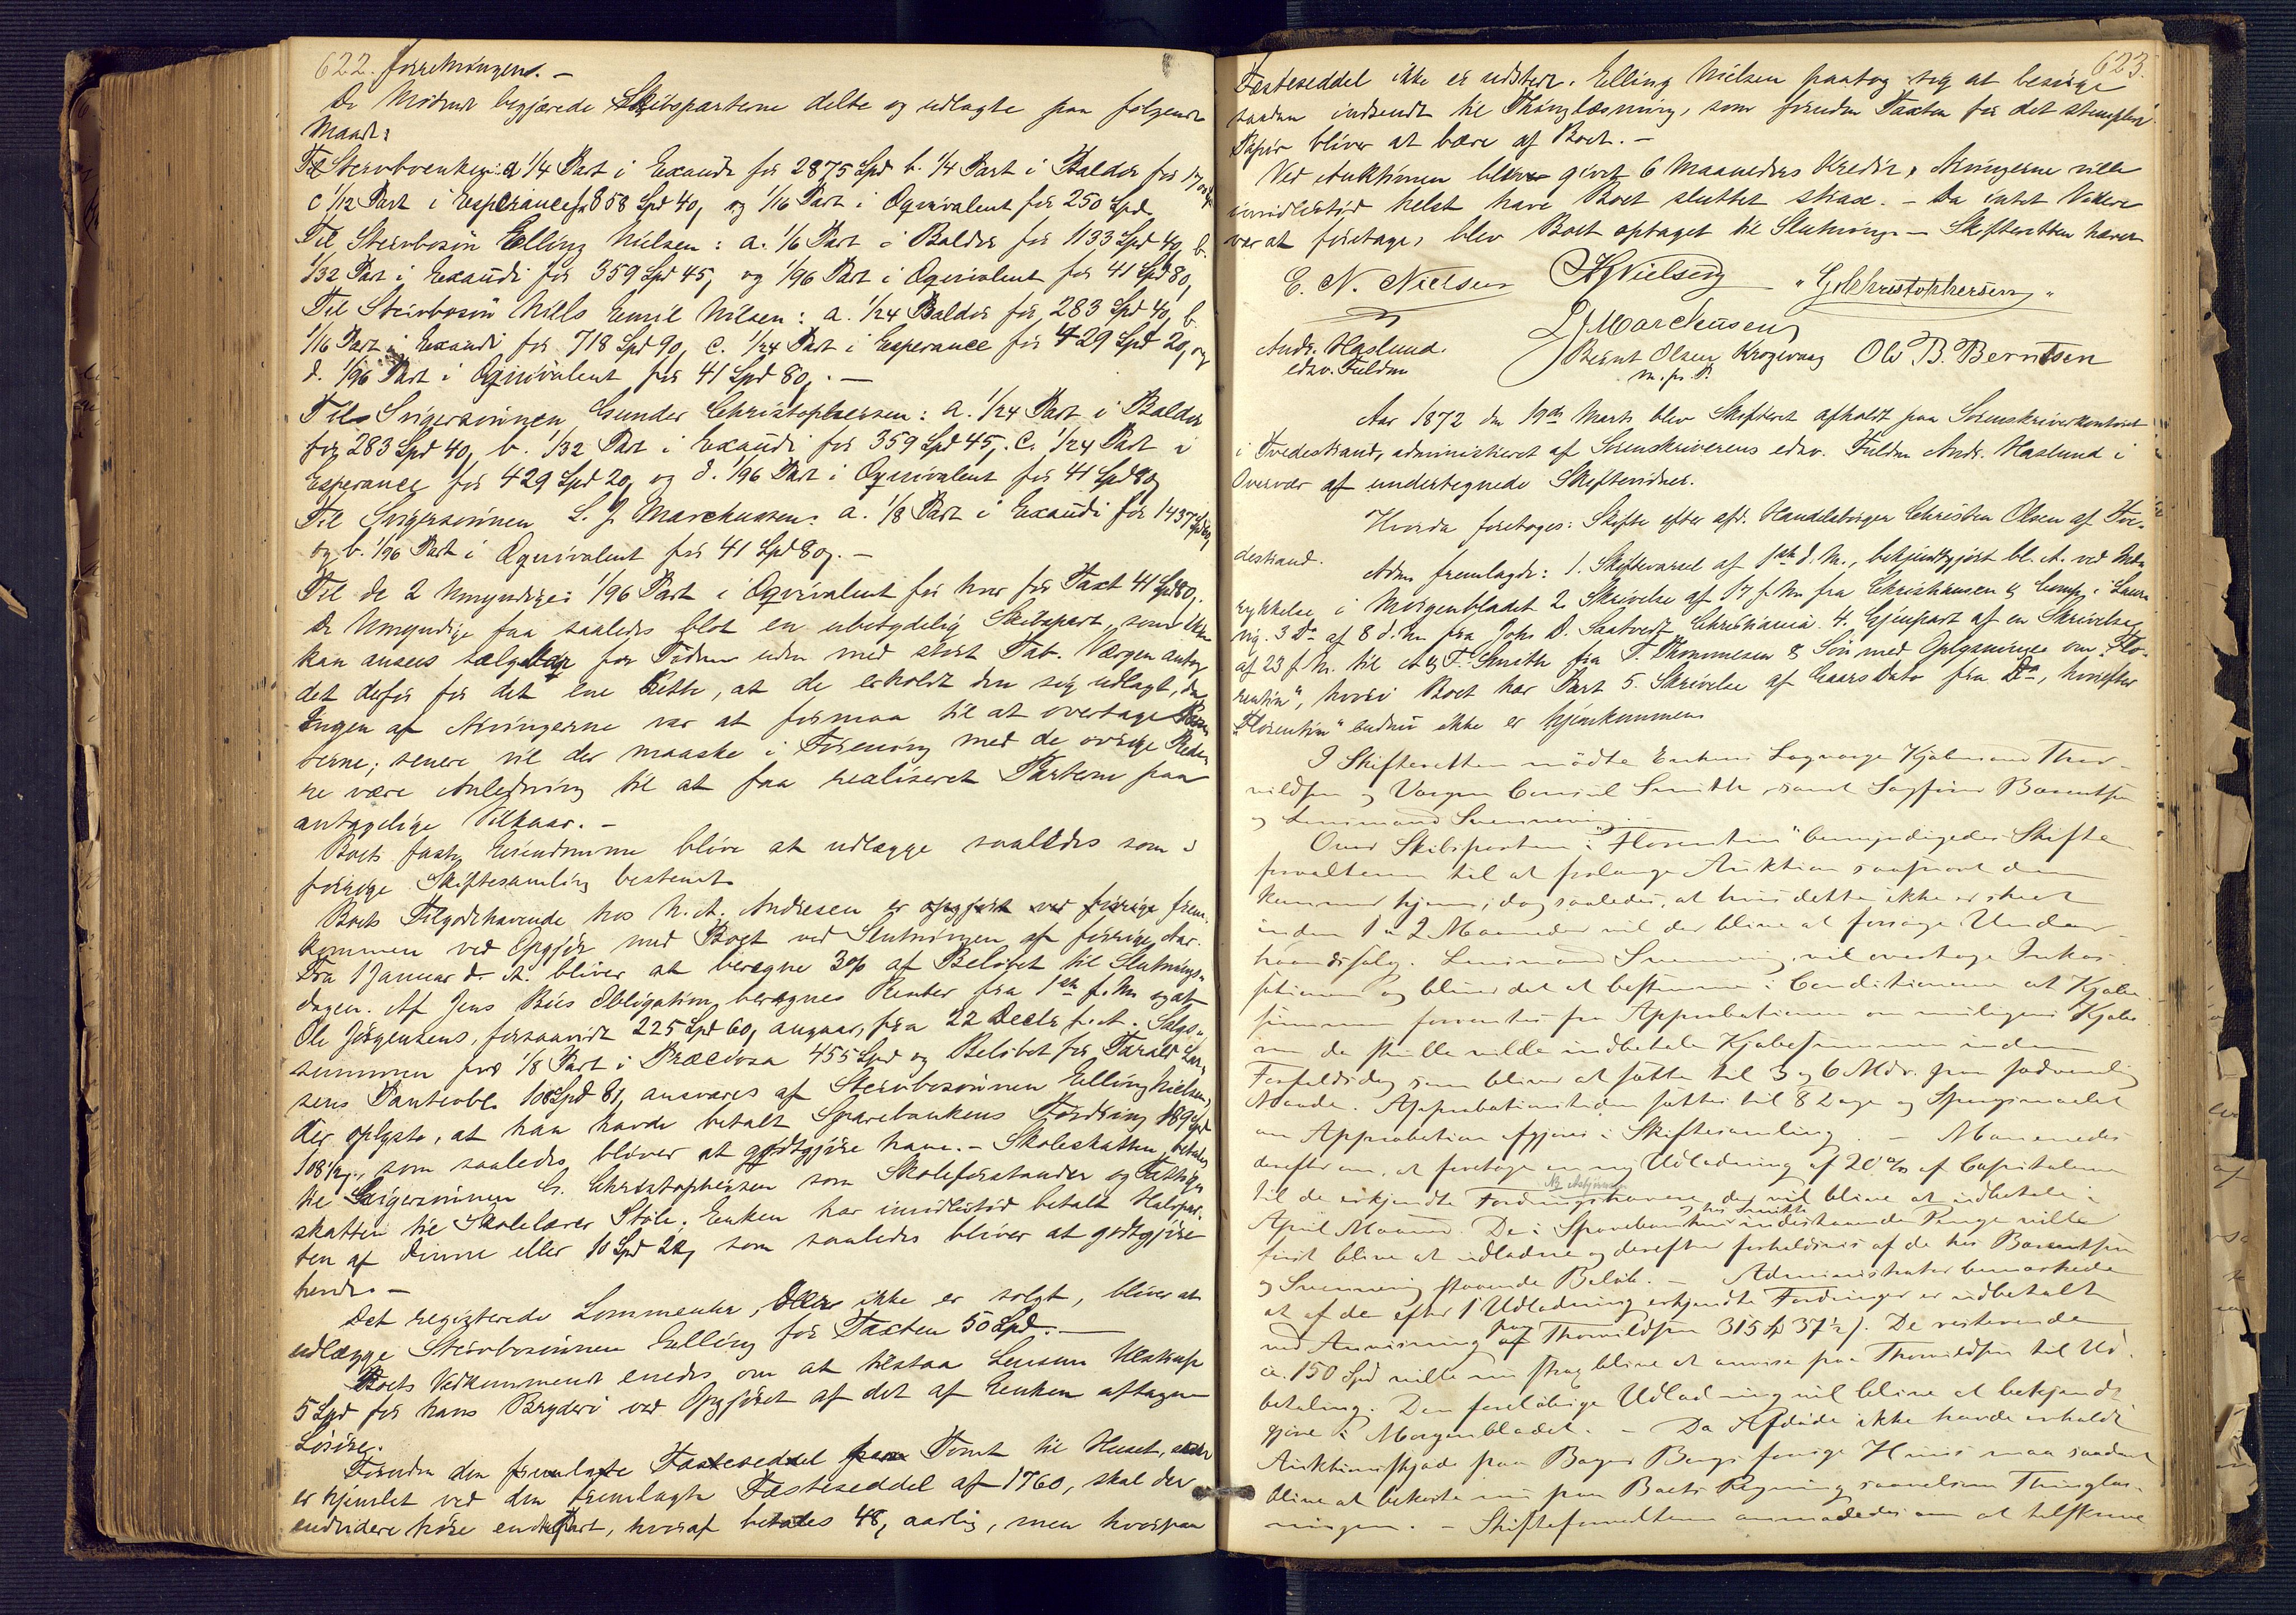 622. forretningen. —
De Mødende begjærede Skibsparterne delte og udlagte paa følgende
Maade:
Til Stervboenken: a 1/4 Part i Exaudi for 2875 Spd b. 1/4 Part i Balder for 1700 Spd
c 1/12 Part i Esperance for 858 Spd 40, og 1/16 Part i Æqvivalent for 250 Spd.
Til Stervbosøn Elling Nielsen: a. 1/6 Part i Balder for 1133 Spd 40, b.
1/32 Part i Exaudi for 359 Spd 45, og 1/96 Part i Æqvivalent for 41 Spd 80,
Til Stervbosøn Niels Emil Nilsen: a. 1/24 Balder for 283 Spd 40, b.
1/16 Part i Exaudi for 718 Spd 90, c. 1/24 Part i Esperance for 429 Spd 20, og
d. 1/96 Part i Æqvivalent for 41 Spd 80, . —
Til Svigersønnen Gunder Christophersen: a. 1/24 Part i Balder
for 283 Spd 40, b. 1/32 Part i Exaudi for 359 Spd 45, c. 1/24 Part i
Esperance for 429 Spd 20, og d. 1/96 Part i Æqvivalent for 41 Spd 80,
Til Svigersønnen L. J. Marchussen: a. 1/8 Part i Exaudi for 1437 Spd 60,
og b. 1/96 Part i Æqvivalent for 41 Spd 80,. —
Til de 2 Umyndige: 1/96 Part i Æqvivalent for hver for Taxt 41 Spd 80,.
De Umyndige faa saaledes blot en ubetydelig Skibspart, som ikke
kan ansees sælgbar for Tiden uden med stort Tab. Værgen antog
det derfor for det ene Rette, at de erholdt den sig udlagt, da
Ingen af Arvingerne var at formaa til at overtage Par-
terne; senere vil der maaske i Forening med de øvrige Rede-
re være Anledning til at faa realiseret Parterne paa
antagelige Vilkaar. —
Boets faste Eiendomme blive at udlægge saaledes som i
forrige Skiftesamling bestemt.
Boets Tilgodehavende hos N. A. Andresen er opgjort ved forrige frem-
kommen ved Opgjør med Boet ved Slutningen af forrige Aar.
Fra 1 Januar d. A. bliver at beregne 3% af Beløbet til Slutnings-
dagen. Af Jens Bøes Obligation beregnes Renter fra 1ste f. M. og af
Ole Jørgensens, forsaavidt 225 Spd 60, angaar, fra 22 Decbr f. A. Salgs-
summen for 1/8 Part i Præciosa 455 Spd og Beløbet for Tarald Lar-
sens Panteobl. 108 Spd 81, ansvares af Stervbosønnen Elling Nielsen,
der oplyste, at han havde betalt Sparebankens Fordring 189 Spd
108 1/2,, som saaledes bliver at godtgjøre ham. — Skoleskatten betales
til Svigersønnen G. Christophersen som Skoleforstander og Fattig-
skatten til Skolelærer Støle. Enken har imidlertid betalt Halvpar-
ten af denne eller 10 Spd 20, som saaledes bliver at godtgjøre
hende. —
Det registerede Lommeuhr, der ikke er solgt, bliver at
udlægge Stervbosønnen Elling for Taxten 50 Spd. —
Boets Vedkommende enedes om at tilstaa Lensm. Ulstrup
5 Spd for hans Bryderi ved Opgjøret af det af Enken aftagne
Løsøre.
Foruden den fremlagte Fæsteseddel paa Tomt til Huset, der
er hjemlet ved den fremlagte Fæsteseddel af 1760, skal der
endvidere høre en Part, hvoraf betales 48, aarlig, men hvorpaa
623.
Fæsteseddel ikke er udstedt. Elling Nielsen paatog sig at besørge
saadan indsendt til Thinglæsning, som foruden Taxten for det stemplede
Papir bliver at bære af Boet. —
Ved Auktionen blev givet 6 Maaneders Kredit, Arvingerne ville
imidlertid helst have Boet sluttet strax. — Da intet Videre
var at foretage, blev Boet optaget til Slutning. — Skifteretten hævet
E. N. Nielsen NNielsen "G. Christophersen"
L J Marchusen
Andr. Haslund. Bernt Olsen Krogevaag Ole B. Berntsen
edsv. Fuldm m. p. P.
Aar 1872 den 19de Marts blev Skifteret afholdt paa Sorenskriverkontoret
i Tvedestrand, administreret af Sorenskriverens edsv. Fuldm Andr. Haslund i
Overvær af undertegnede Skiftevidner.
Hvorda foretoges: Skifte efter afd. Handelsborger Christen Olsen af Tve-
destrand.
Adm fremlagde: 1. Skiftevarsel af 1ste d. M., bekjendtgjort bl. A. ved Ind-
rykkelse i Morgenbladet 2. Skrivelse af 17 f. M. fra Christiansen & Comp. i Laur-
vig. 3 Do af 8 d. M. fra Johs D. Saatvedt Christiania 4. Gjenpart af en Skrivelse
af 23 f. M. til A & T. Smith fra T. Thommesen & Søn med Oplysninger om "Flo-
rentin", hvori Boet har Part 5. Skrivelse af Gaars Dato fra Do, hvorefter
"Florentin" endnu ikke er hjemkommen
I Skifteretten mødte Enkens Lagværge Kjøbmand Thor-
vildsen og Værgen Consul Smith, samt Sagfører Barentsen
og Lensmand Svenning.
Over Skibsparten i "Florentin" bemyndigedes Skifte-
forvalteren til at forlange Auktion saasnart den
kommer hjem; dog saaledes, at hvis dette ikke er skeet
inden 1 a 2 Maaneder vil der blive at forsøge Under-
haandssalg. Lensmand Svenning vil overtage Inkas-
sationen og bliver det at bestemme i Conditionerne at Kjøbe-
summen forrentes fra Approbationen om muligens Kjøbe-
ren da skulle ville indbetale Kjøbesummen inden
Forfaldsdag som bliver at sætte til 3 og 6 Mdr. paa sædvanlig
Maade. Approbationstiden sættes til 8 Dage og Spørgsmaalet
om Approbation afgjøres i Skiftesamling. — Man enedes
derefter om, at foretage en ny Udlodning af 20 % af Capitalerne
til de erkjendte Fordringshavere, der vil blive at udbetale i
April Maaned. De i Sparebanken og hos Smith indestaaende Penge ville
først blive at udlodde og derefter forholdsvis af de hos Barentsen
og Svenning staaende Beløb. — Administrator bemærkede
at af de efter 1 Udlodning erkjendte Fordringer er udbetalt
ved Anvisning paa Thorvildsen 315 Sp 37 1/2 /. De resterende
ca. 150 Spd ville nu strax blive at anvise paa Thorvildsen til Ud-
betaling. Den foreløbige Udlodning vil blive at bekjendt-
gjøre i Morgenbladet. — Da Afdøde ikke havde erholdt
Auktionsskjøde paa Bager Bergs forrige Huus maa saadant
blive at bekoste nu paa Boets Regning saavelsom Thinglæs-
ningen. — Skifteforvalteren anmodedes om at tilskrive